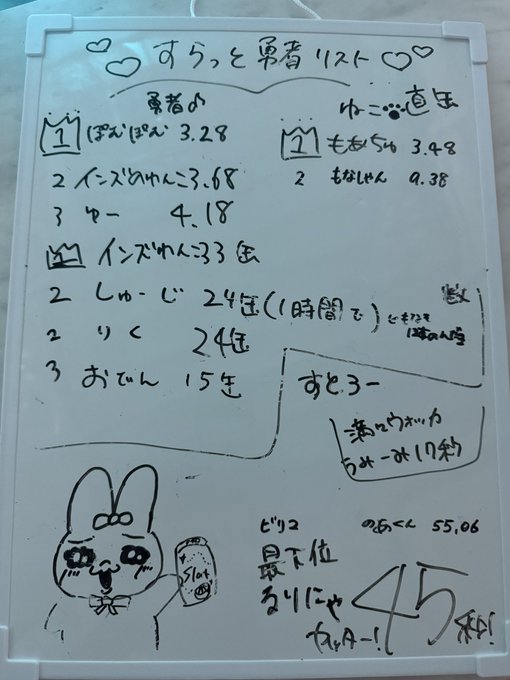 すらっと勇者リスト
勇者♪
1 ぽむぽむ 3.28
2 インズのわんこ 3.68
3 ゆー 4.18
インズわんこ33缶
2 しゅーじ 24缶(1時間で)
2 りく 24缶
3 おでん 15缶
ねこ直缶
1 ももちゅ 3.48
2 もなしゃん 9.38
すとろー
満タンウォッカ
うみーみ17秒
Slat
ビリ2 のあくん 55.06
最下位
るりにゃ
45秒!